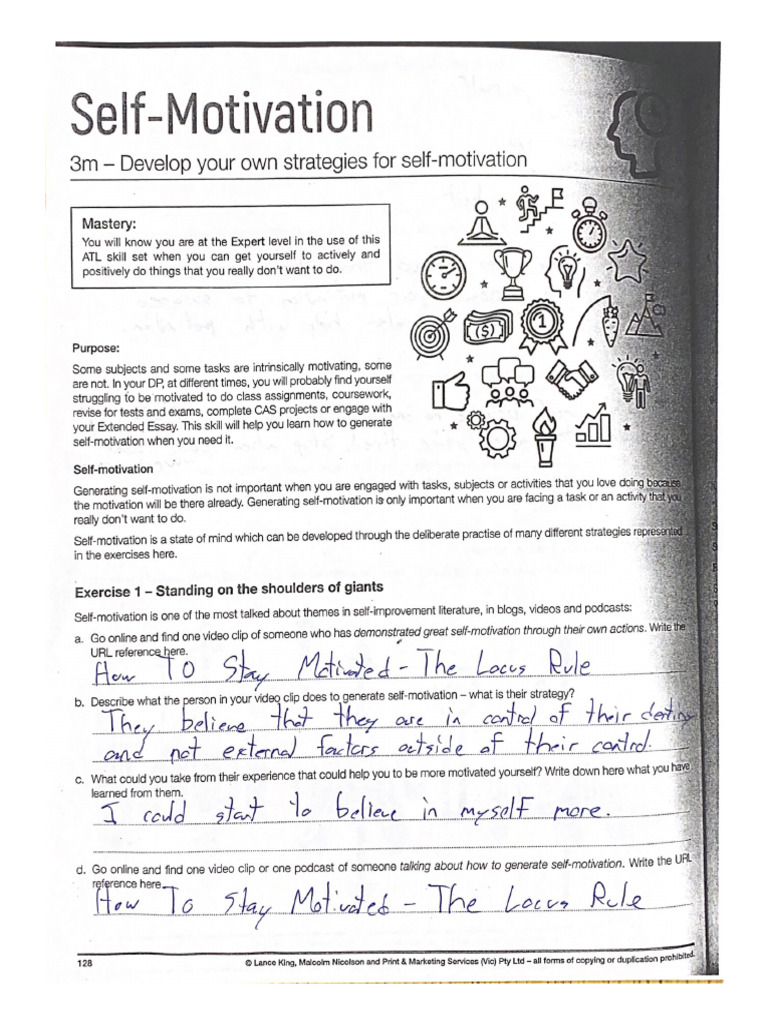 Self-Motivation
3m – Develop your own strategies for self-motivation
Mastery:
You will know you are at the Expert level in the use of this
ATL skill set when you can get yourself to actively and
positively do things that you really don't want to do.
1
($)
Purpose:
Some subjects and some tasks are intrinsically motivating, some
are not. In your DP, at different times, you will probably find yourself
struggling to be motivated to do class assignments, coursework,
revise for tests and exams, complete CAS projects or engage with
your Extended Essay. This skill will help you learn how to generate
self-motivation when you need it.
Self-motivation
Generating self-motivation is not important when you are engaged with tasks, subjects or activities that you love doing because
the motivation will be there already. Generating self-motivation is only important when you are facing a task or an activity that you
really don't want to do.
Self-motivation is a state of mind which can be developed through the deliberate practise of many different strategies represented
in the exercises here.
Exercise 1 – Standing on the shoulders of giants
Self-motivation is one of the most talked about themes in self-improvement literature, in blogs, videos and podcasts:
a. Go online and find one video clip of someone who has demonstrated great self-motivation through their own actions. Write the
URL reference here.
How To Stay Motivated - The Locus Rule
b. Describe what the person in your video clip does to generate self-motivation – what is their strategy?
They believe that they are in control of their destiny
and not external factors outside of their control.
c. What could you take from their experience that could help you to be more motivated yourself? Write down here what you have
learned from them.
I could start to believe in myself more.
d. Go online and find one video clip or one podcast of someone talking about how to generate self-motivation. Write the URL
reference here.
How To Stay Motivated - The Locus Rule
128
© Lance King, Malcolm Nicolson and Print & Marketing Services (Vic) Pty Ltd – all forms of copying or duplication prohibited.